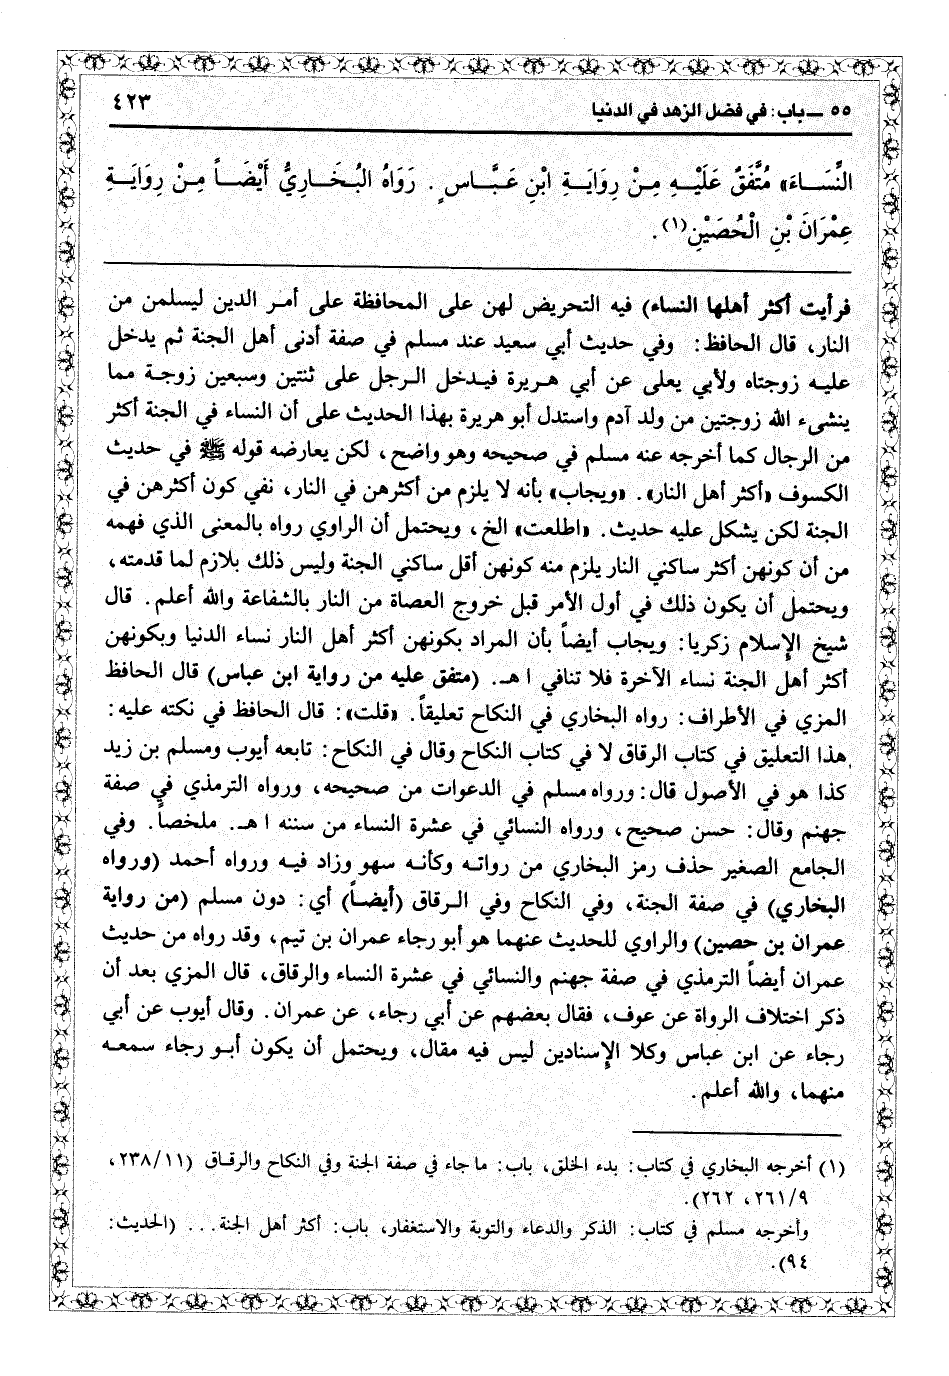 ٥٥ ــ باب: في فضل الزهد في الدنيا
٤٢٣
النِّسَاءَ» مُتَّفَقٌ عَلَيْهِ مِنْ رِوَايَةِ ابْنِ عَبَّاسٍ. رَوَاهُ البُخَارِيُّ أَيْضَاً مِنْ رِوَايَةِ
عِمْرَانَ بْنِ الْحُصَيْنِ(١).
فرأيت أكثر أهلها النساء) فيه التحريض لهن على المحافظة على أمر الدين ليسلمن من
النار، قال الحافظ: وفي حديث أبي سعيد عند مسلم في صفة أدنى أهل الجنة ثم يدخل
عليه زوجتاه ولأبي يعلى عن أبي هريرة فيدخل الرجل على ثنتين وسبعين زوجة مما
ينشىء الله زوجتين من ولد آدم واستدل أبو هريرة بهذا الحديث على أن النساء في الجنة أكثر
من الرجال كما أخرجه عنه مسلم في صحيحه وهو واضح، لكن يعارضه قوله ﷺ في حديث
الكسوف «أكثر أهل النار». «ويجاب» بأنه لا يلزم من أكثرهن في النار، نفي كون أكثرهن في
الجنة لكن يشكل عليه حديث. «اطلعت» الخ، ويحتمل أن الراوي رواه بالمعنى الذي فهمه
من أن كونهن أكثر ساكني النار يلزم منه كونهن أقل ساكني الجنة وليس ذلك بلازم لما قدمته،
ويحتمل أن يكون ذلك في أول الأمر قبل خروج العصاة من النار بالشفاعة والله أعلم. قال
شيخ الإسلام زكريا: ويجاب أيضاً بأن المراد بكونهن أكثر أهل النار نساء الدنيا وبكونهن
أكثر أهل الجنة نساء الآخرة فلا تنافي ا هـ. (متفق عليه من رواية ابن عباس) قال الحافظ
المزي في الأطراف: رواه البخاري في النكاح تعليقاً. «قلت»: قال الحافظ في نكته عليه:
هذا التعليق في كتاب الرقاق لا في كتاب النكاح وقال في النكاح: تابعه أيوب ومسلم بن زيد
كذا هو في الأصول قال: ورواه مسلم في الدعوات من صحيحه، ورواه الترمذي في صفة
جهنم وقال: حسن صحيح، ورواه النسائي في عشرة النساء من سننه ا هـ. ملخصاً. وفي
الجامع الصغير حذف رمز البخاري من رواته وكأنه سهو وزاد فيه ورواه أحمد (ورواه
البخاري) في صفة الجنة، وفي النكاح وفي الرقاق (أيضاً) أي: دون مسلم (من رواية
عمران بن حصين) والراوي للحديث عنهما هو أبو رجاء عمران بن تيم، وقد رواه من حديث
عمران أيضاً الترمذي في صفة جهنم والنسائي في عشرة النساء والرقاق، قال المزي بعد أن
ذكر اختلاف الرواة عن عوف، فقال بعضهم عن أبي رجاء، عن عمران. وقال أيوب عن أبي
رجاء عن ابن عباس وكلا الإسنادين ليس فيه مقال، ويحتمل أن يكون أبو رجاء سمعه
منهما، والله أعلم.
(١) أخرجه البخاري في كتاب: بدء الخلق، باب: ما جاء في صفة الجنة وفي النكاح والرقاق (٢٣٨/١١،
٢٦١/٩، ٢٦٢).
وأخرجه مسلم في كتاب: الذكر والدعاء والتوبة والاستغفار، باب: أكثر أهل الجنة... (الحديث:
٩٤).